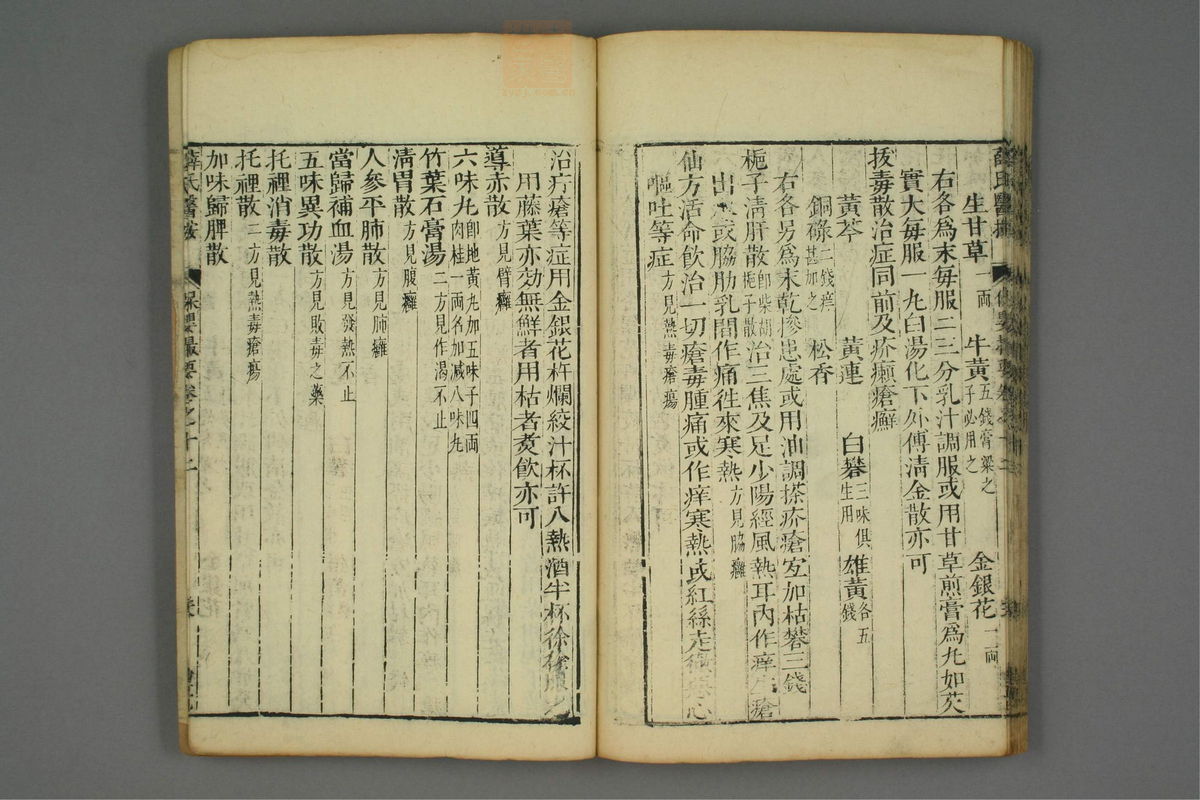 生甘草一兩 牛黃五錢膏粱之子必用之 金銀花二兩
右各爲末每服二三分乳汁調服或用甘草煎膏爲丸如芡
實大每服一丸白湯化下外傅清金散亦可
拔毒散治症同前及疥癩瘡癬
黃芩 黃連 白礬三味俱生用 雄黃各五錢
銅碌二錢痒甚加之 松香
右各另爲末乾摻患處或用油調搽疥瘡宜加枯礬三錢
梔子清肝散卽柴胡梔子散治三焦及足少陽經風熱耳內作痒生瘡
出水或脇肋乳間作痛徃來寒熱方見脇癰
仙方活命飲治一切瘡毒腫痛或作痒寒熱或紅絲走心
嘔吐等症方見熱毒瘡瘍
治疔瘡等症用金銀花杵爛絞汁杯許入熱酒半杯徐徐服之
用藤葉亦効無鮮者用枯者煑飲亦可
導赤散方見臂癰
六味丸卽地黃丸加五味子四兩肉桂一兩名加減八味丸
竹葉石膏湯二方見作渴不止
清胃散方見腹癰
人參平肺散方見肺癰
當歸補血湯方見發熱不止
五味異功散方見敗毒之藥
托裡消毒散
托裡散二方見熱毒瘡瘍
加味歸脾散
薛氏醫按 保嬰撮要卷之十二